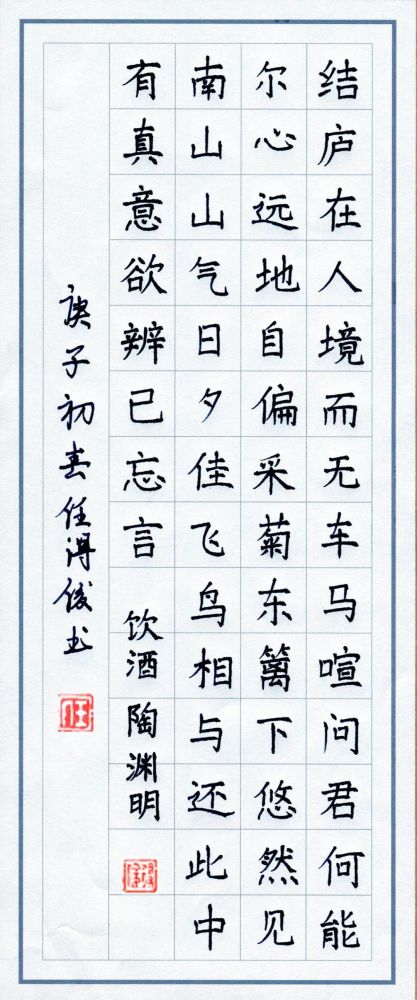 结庐在人境而无车马喧问君何能
尔心远地自偏采菊东篱下悠然见
南山山气日夕佳飞鸟相与还此中
有真意欲辨已忘言
饮酒 陶渊明
庚子初春任得俊书
任